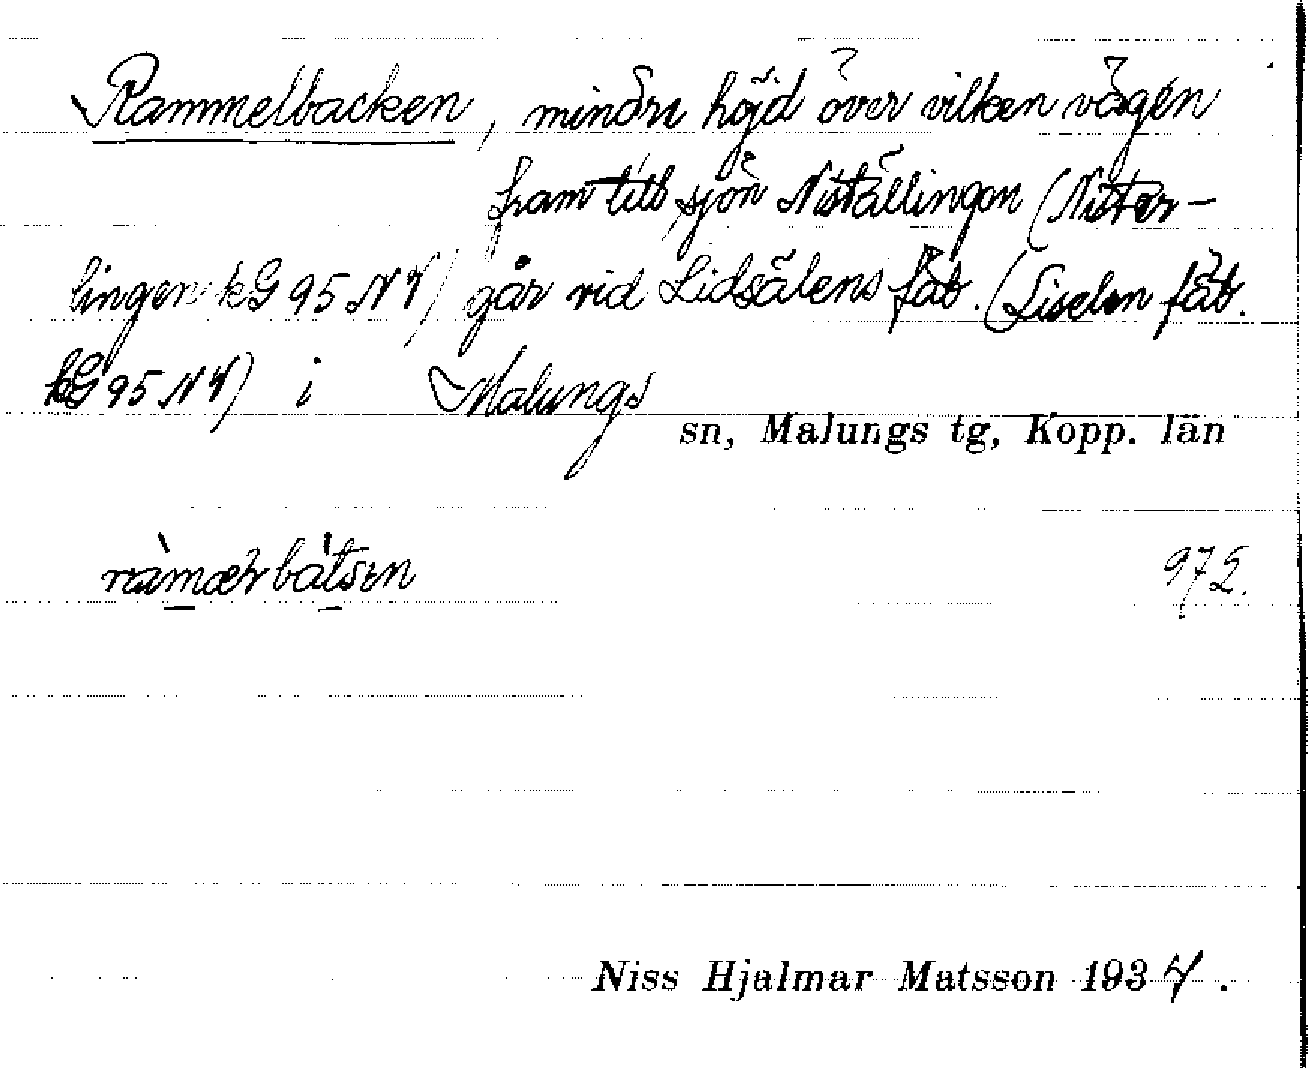 Rammelbacken, mindre höjd över vilken vägen
fram till sjön Niställingen (Nitter-
lingen kG 95 NV) går vid Lidsälens fäb. (Liselen fäb.
kG 95 NV) i Malungs
sn, Malungs tg, Kopp. län
972.
Niss Hjalmar Matsson 1934.